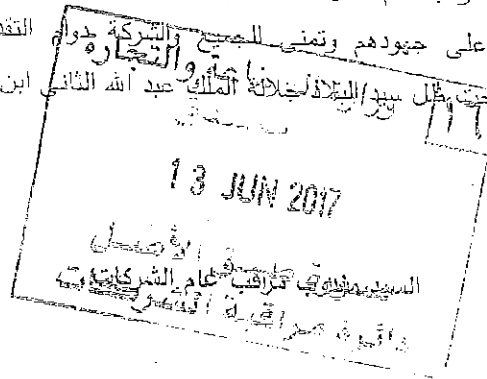 على جهودهم وتمنى للجميع وللشركة دوام التقد
تحت ظل سيد البلاد جلالة الملك عبد الله الثاني ابن
والتجارة
13 JUN 2017
السيد مندوب مراقب عام الشركات
صورة طبق الأصل
دائرة مراقبة الشركات